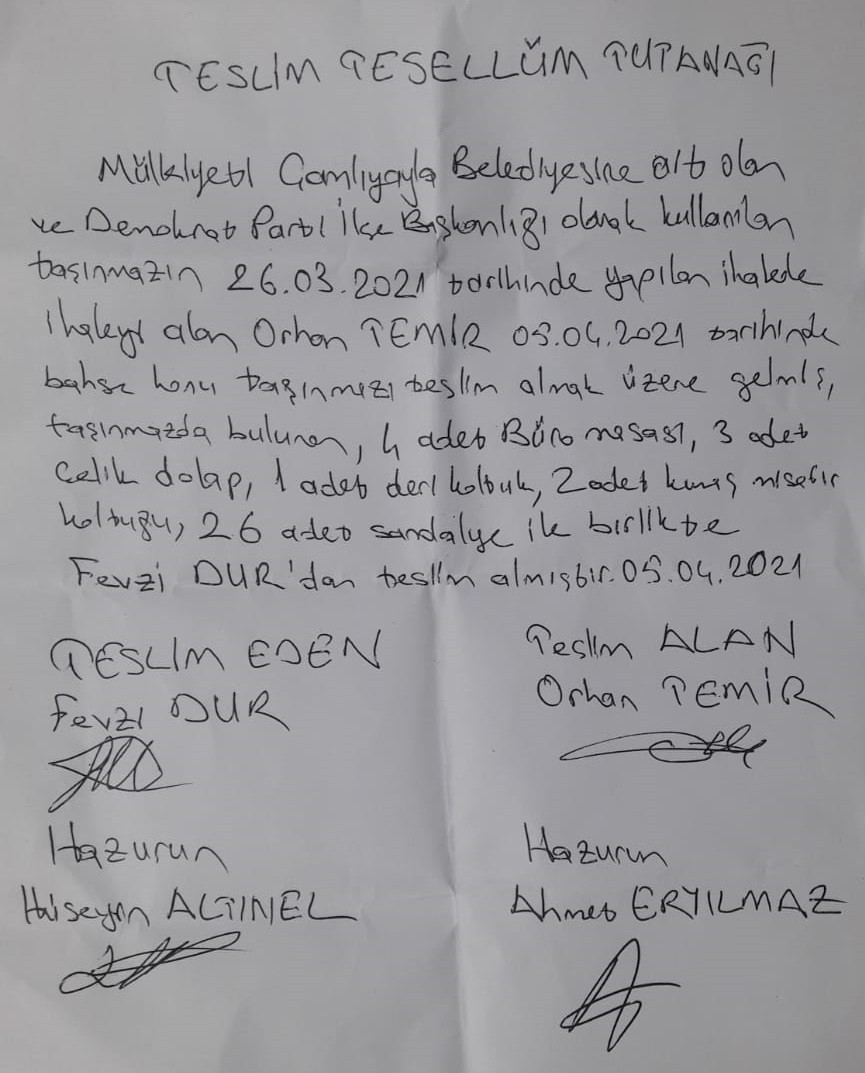 TESLİM TESELLÜM TUTANAĞI
Mülkiyeti Çamlıyayla Belediyesine ait olan
ve Demokrat Parti İlçe Başkanlığı olarak kullanılan
taşınmazın 26.03.2021 tarihinde yapılan ihalede
ihaleyi alan Orhan TEMİR 05.04.2021 tarihinde
bahse konu taşınmazı teslim almak üzere gelmiş,
taşınmazda bulunan, 4 adet Büro masası, 3 adet
Çelik dolap, 1 adet deri koltuk, 2 adet kumaş misafir
koltuğu, 26 adet sandalye ile birlikte
Fevzi DUR'dan teslim almıştır. 05.04.2021
TESLİM EDEN
Teslim ALAN
Fevzi DUR
Orhan TEMİR
Hazurun
Hazurun
Hüseyin ALTINEL
Ahmet ERYILMAZ